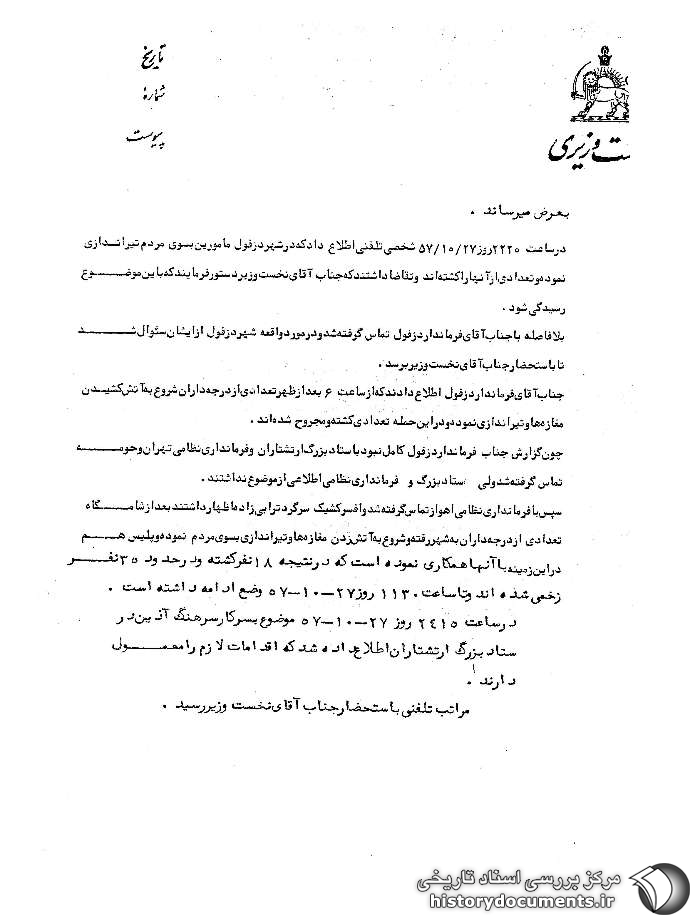 تاریخ
شمارهٔ
پیوست
ست وزیری
بعرض میرساند .
درساعت ۲۲۲۰ روز ۵۷/۱۰/۲۷ شخصی تلفنی اطلاع دادکه درشهردزفول مامورین بسوی مردم تیراندازی
نموده وتعدادی ازآنهاراکشته اند وتقاضا داشتندکه جناب آقای نخست وزیر دستورفرمایند که باین موضوع
رسیدگی شود .
بلافاصله باجناب آقای فرماندار دزفول تماس گرفته شد ودرمورد واقعه شهر دزفول ازایشان سئوال شد
تا باستحضارجناب آقای نخست وزیر برسد .
جناب آقای فرمانداردزفول اطلاع دادندکه ازساعت ۶ بعدازظهرتعدادی ازدرجه داران شروع به آتش کشیدن
مغازه ها وتیراندازی نموده ودراین حمله تعدادی کشته ومجروح شده اند .
چون گزارش جناب فرمانداردزفول کامل نبود باستاد بزرگ ارتشتاران وفرمانداری نظامی تهران وحومه
تماس گرفته شد ولی ستاد بزرگ و فرمانداری نظامی اطلاعی ازموضوع نداشتند .
سپس بافرمانداری نظامی اهوازتماس گرفته شد وافسرکشیک سرگرد ترابی زاده اظهارداشتند بعدازشامگاه
تعدادی ازدرجه داران به شهررفته وشروع به آتش زدن مغازه ها وتیراندازی بسوی مردم نموده وپلیس هم
دراین زمینه باآنها همکاری نموده است که درنتیجه ۱۸ نفرکشته ودرحدود ۳۵ نفر
زخمی شده اند وتاساعت ۱۱۳۰ روز ۲۷-۱۰-۵۷ وضع ادامه داشته است .
درساعت ۲۴۱۵ روز ۲۷-۱۰-۵۷ موضوع بسرکارسرهنگ آذین در
ستاد بزرگ ارتشتاران اطلاع داده شد که اقدامات لازم رامعمول
دارند .
مراتب تلفنی باستحضارجناب آقای نخست وزیررسید .
مرکز بررسی اسناد تاریخی
historydocuments.ir